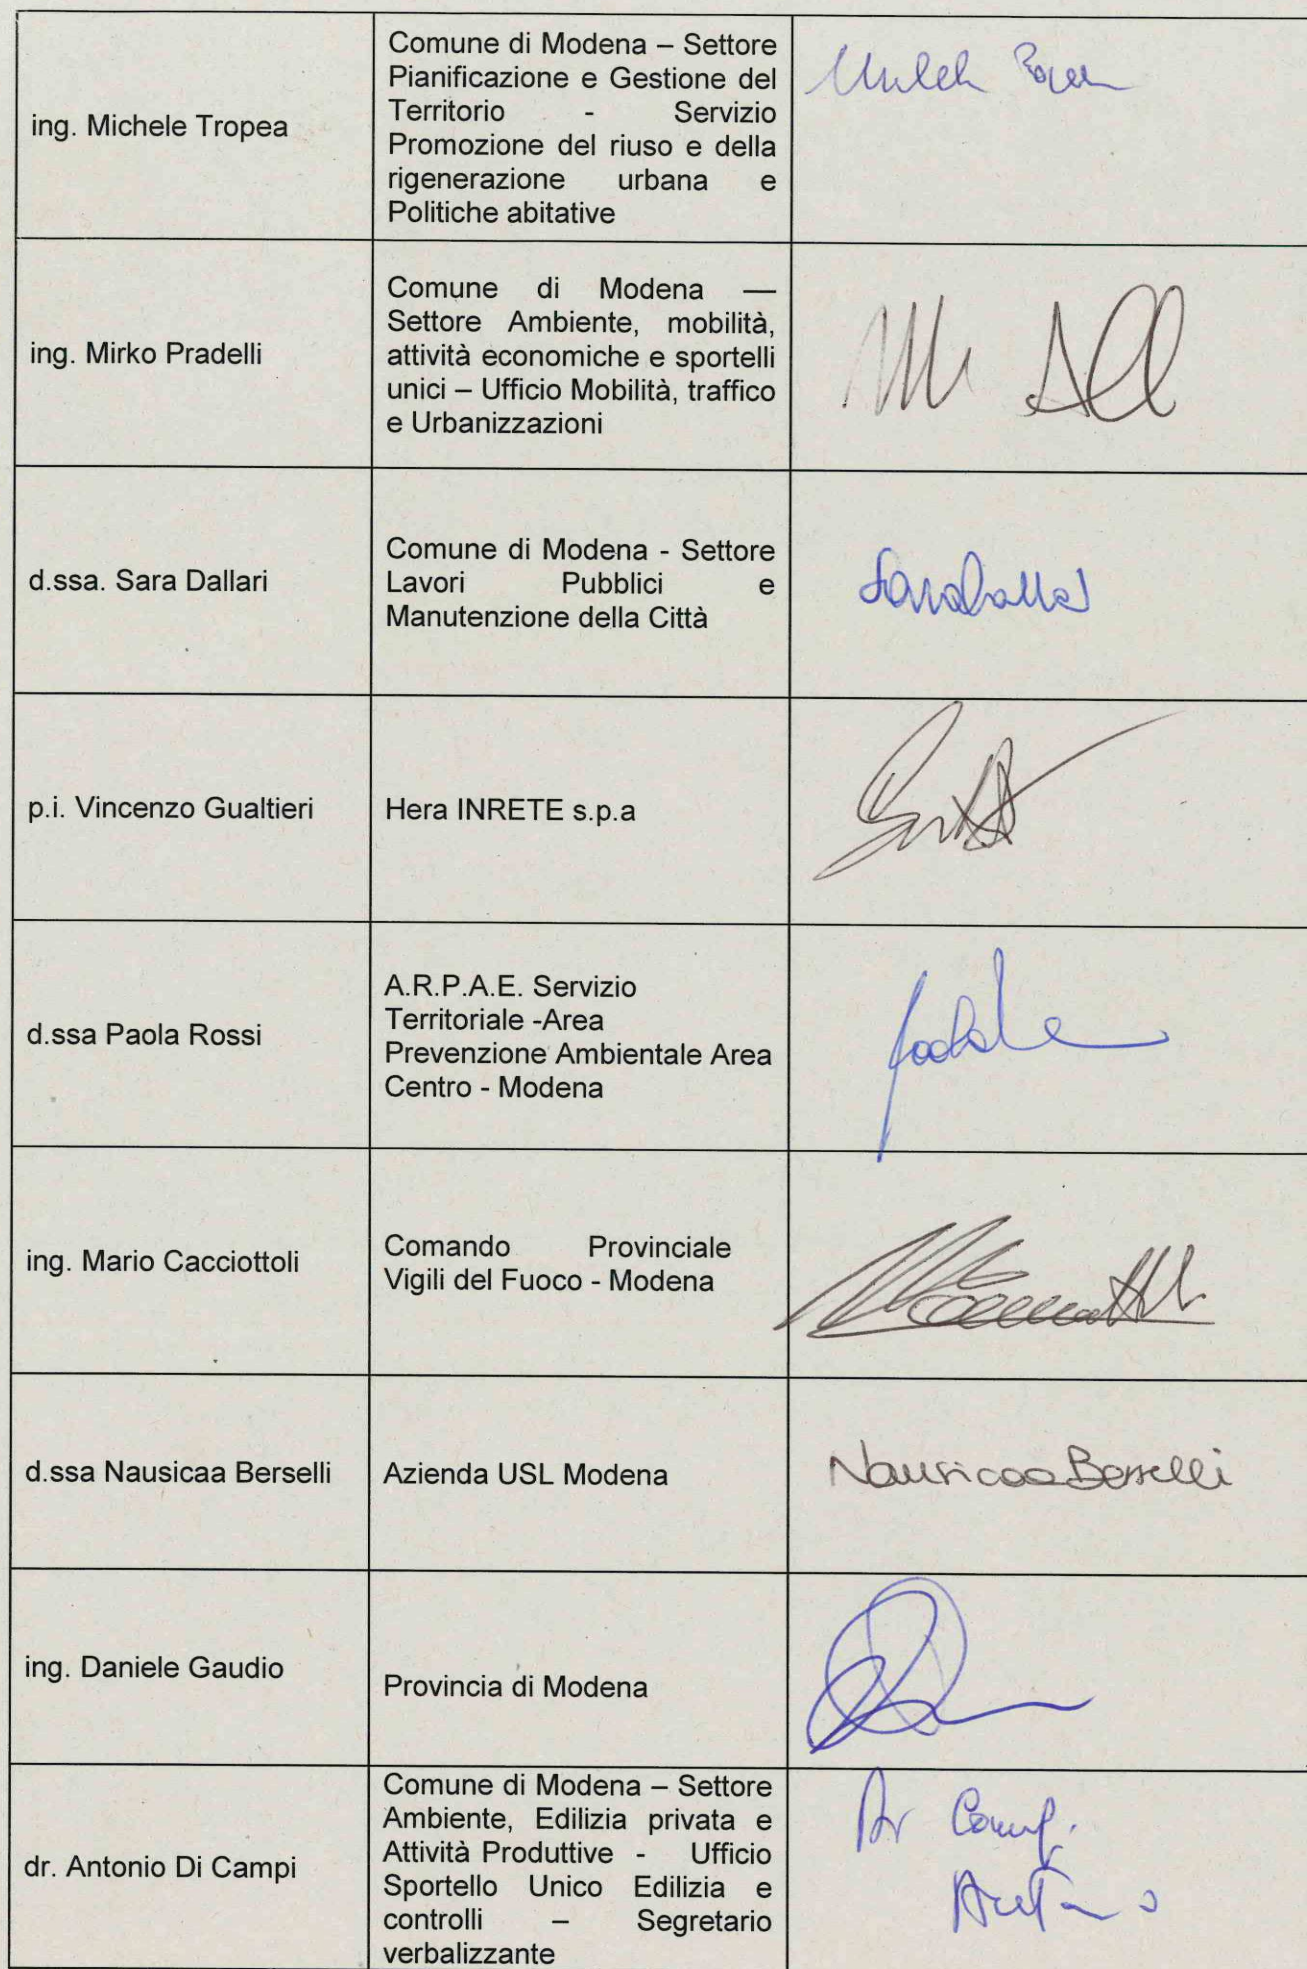 ing. Michele Tropea
Comune di Modena – Settore
Pianificazione e Gestione del
Territorio - Servizio
Promozione del riuso e della
rigenerazione urbana e
Politiche abitative
ing. Mirko Pradelli
Comune di Modena —
Settore Ambiente, mobilità,
attività economiche e sportelli
unici – Ufficio Mobilità, traffico
e Urbanizzazioni
d.ssa. Sara Dallari
Comune di Modena - Settore
Lavori Pubblici e
Manutenzione della Città
p.i. Vincenzo Gualtieri
Hera INRETE s.p.a
d.ssa Paola Rossi
A.R.P.A.E. Servizio
Territoriale -Area
Prevenzione Ambientale Area
Centro - Modena
ing. Mario Cacciottoli
Comando Provinciale
Vigili del Fuoco - Modena
d.ssa Nausicaa Berselli
Azienda USL Modena
Nausicaa Berselli
ing. Daniele Gaudio
Provincia di Modena
dr. Antonio Di Campi
Comune di Modena – Settore
Ambiente, Edilizia privata e
Attività Produttive - Ufficio
Sportello Unico Edilizia e
controlli – Segretario
verbalizzante